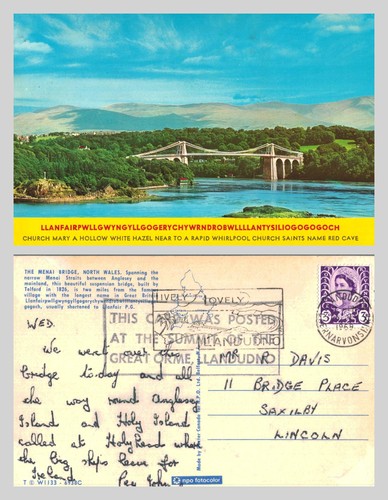 LLANFAIRPWLLGWYNGYLLGOGERYCHYWRNDROBWLLLLANTYSILIOGOGOGOCH
CHURCH MARY A HOLLOW WHITE HAZEL NEAR TO A RAPID WHIRLPOOL CHURCH SAINTS NAME RED CAVE
THE MENAI BRIDGE, NORTH WALES. Spanning the
narrow Menai Straits between Anglesey and the
mainland, this beautiful suspension bridge, built by
Telford in 1826, is two miles from the famous
village with the longest name in Great Britain
usually shortened to Llanfair P.G.
LIVELY LOVELY
LLANDUDNO
THIS CARD WAS POSTED
AT THE SUMMIT OF THE
GREAT ORME, LLANDUDNO
1968
CAERNARVONSHIRE
3D
WED.
We went over this
bridge to-day and all
the way round Anglesey
Island and Holy Island
called at Holyhead where
the big ships leave for
Ireland
MR R DAVIS
11 BRIDGE PLACE
SAXILBY
LINCOLN
npo fotocolor